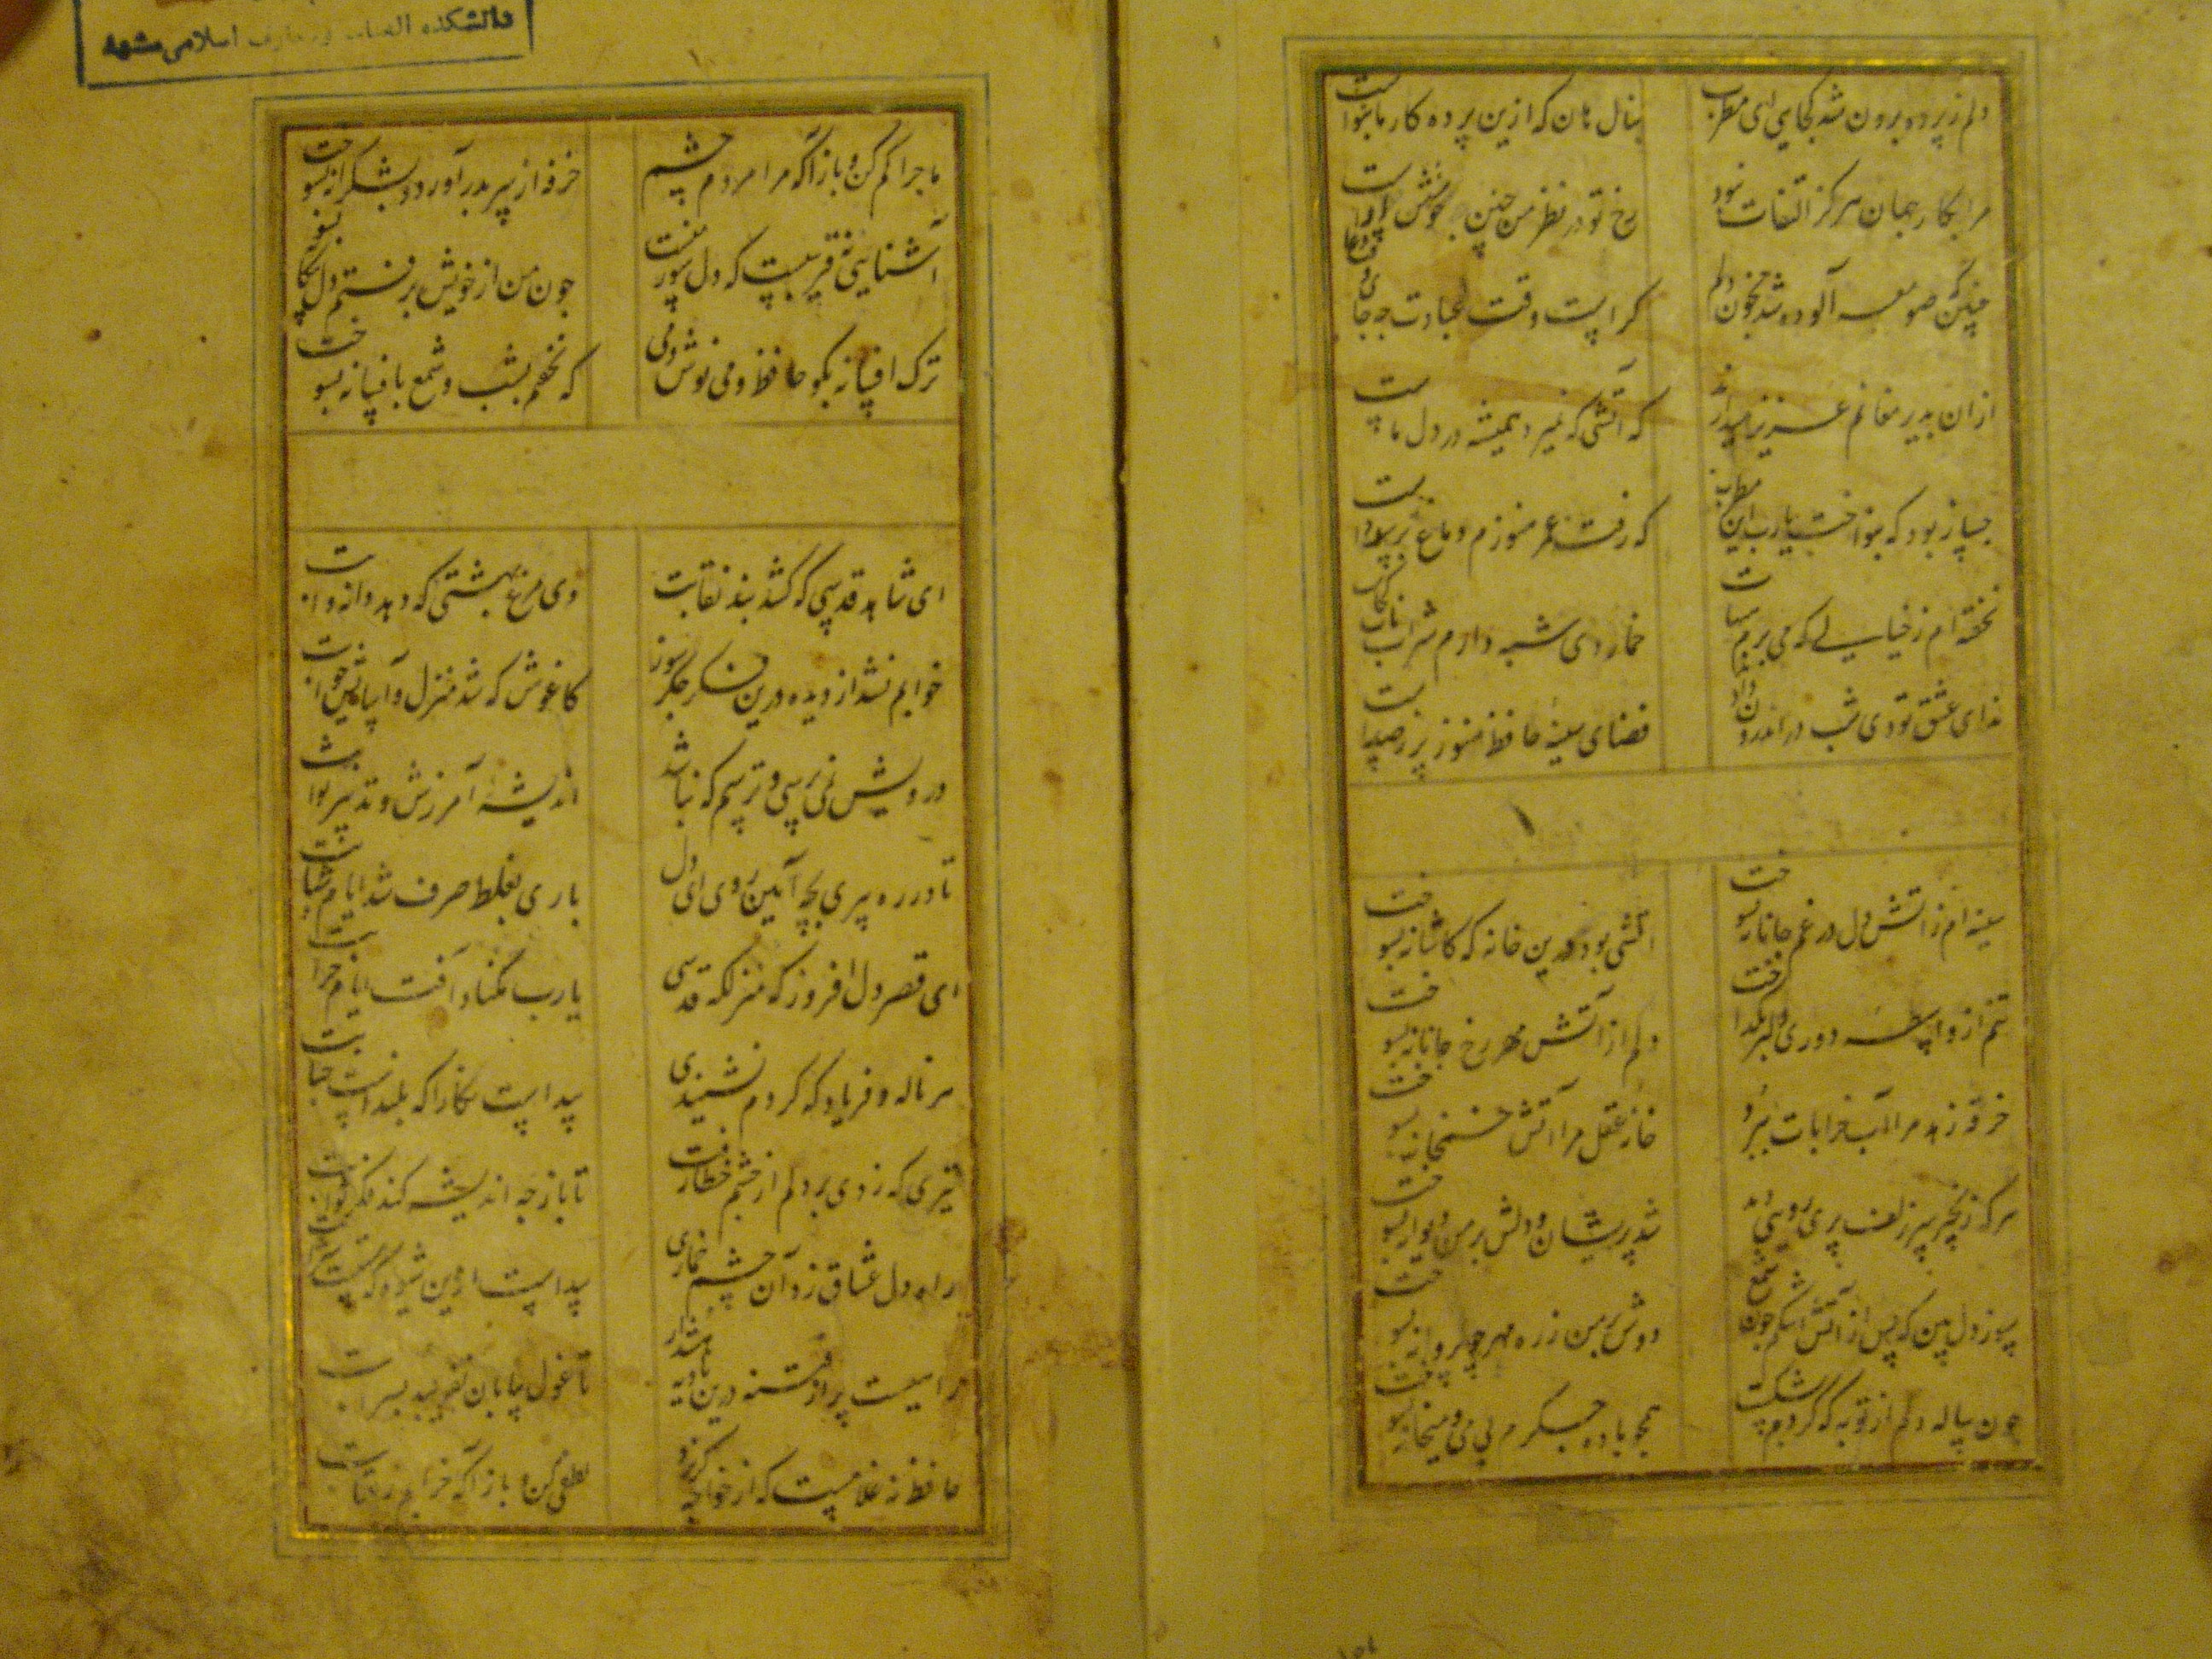 دلم ز پرده برون شد کجایی ای مطرب
بنال هان که ازین پرده کار ما بنواست
مرا بکار جهان هرگز التفات نبود
رخ تو در نظر من چنین خوشش آراست
چنین که صومعه آلوده شد بخون دلم
کراست وقت عبادت چه جای ورد و دعاست
ازان بدیر مغانم عزیز میدارند
که آتشی که نمیرد همیشه در دل ماست
چه ساز بود که بنواخت یارب این مطرب
که رفت عمر و هنوزم دماغ پر ز هواست
نخفته ام ز خیالی که می برم شبهاست
خمار دی شبه دارم شرابخانه کجاست
ندای عشق تو دی شب در اندرون دادند
فضای سینه حافظ هنوز پر ز صداست
سینه ام ز اتش دل در غم جانانه بسوخت
اتشی بود درین خانه که کاشانه بسوخت
تنم از واسطه دوری دلبر بگداخت
دلم از آتش مهر رخ جانانه بسوخت
خرقه زهد مرا آب خرابات ببرد
خانه عقل مرا آتش خمخانه بسوخت
هر که زنجیر سر زلف پری رویی دید
شد پریشان و دلش بر من دیوانه بسوخت
سوز دل بین که بس از آتش اشکم دل شمع
دوش بر من ز ره مهر چو پروانه بسوخت
چون پیاله دلم از توبه که کردم بشکست
همچو باده جگرم بی می و میخانه بسوخت
دانشکده الهیات و معارف اسلامی مشهد
ماجرا کم کن و بازآ که مرا مردم چشم
خرقه از سر بدر آورد و بشکرانه بسوخت
آشنایی نه غریبست که دل سوز منست
چون من از خویش برفتم دل بیگانه بسوخت
ترک افسانه بگو حافظ و می نوش دمی
که نخفتیم بشب و شمع بافسانه بسوخت
ای شاهد قدسی که کشد بند نقابت
وی مرغ بهشتی که دهد دانه و آبت
خوابم نشد از دیده درین فکر جگرسوز
کاغوش که شد منزل و آسایش خوابت
درویش نمی پرسی و ترسم که نباشد
اندیشه آمرزش و تدبیر ثوابت
تا در ره پیری بچه آیین روی ای دل
باری بغلط صرف شد ایام شبابت
ای قصر دل افروز که منزلگه قدسی
یارب مکناد آفت ایام خرابت
هر ناله و فریاد که کردم نشنیدی
پیداست نگارا که بلندست جنابت
تیری که زدی بر دلم از خشم خطا رفت
تا باز چه اندیشه کند فکر ثوابت
راه دل عشاق زد آن چشم خماری
پیداست ازین شیوه که مستست شرابت
راهیست پر از فتنه درین بادیه هشدار
تا غول بیابان نفریبد بسرابت
حافظ نه غلامیست که از خواجه گریزد
لطفی کن و بازآ که خرابم ز عتابت